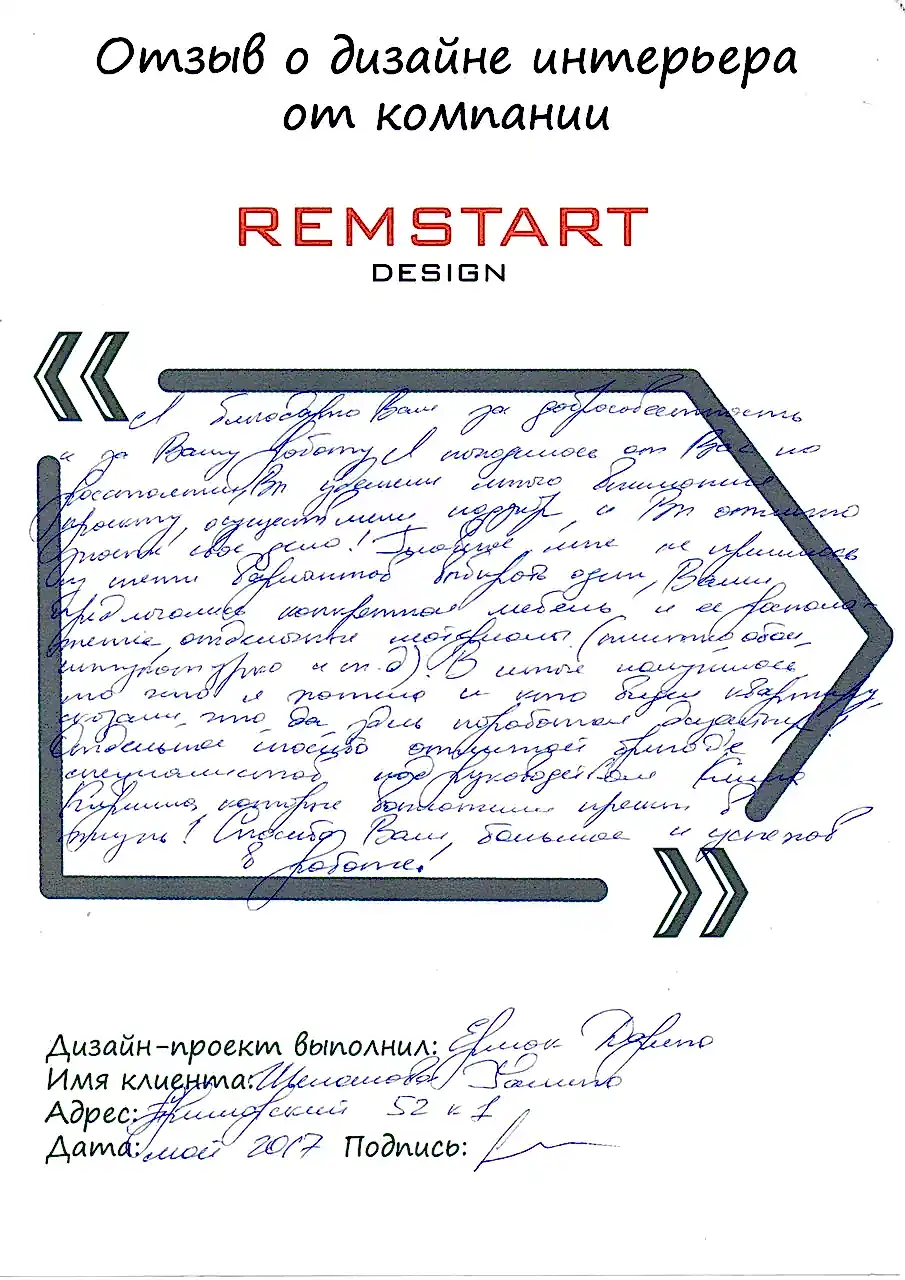 Отзыв о дизайне интерьера
от компании
REMSTART
DESIGN
Я благодарю Вас за добросовестность
и за Вашу работу. Я находилась от Вас на
расстоянии, Вы уделили много внимания
проекту, осуществили и Вы отлично
знаете свое дело! Главное мне не пришлось
из тысячи вариантов выбирать один, Вами
предлагалась конкретная мебель и ее располо-
жение, отделочные материалы (плитка, обои,
штукатурка и т.д). В итоге получилось
то что я хотела и кто видел квартиру,
сказали, что да здесь поработал дизайнер!
Отдельное спасибо бригаде
специалистов под руководством
Кирилла, которые воплотили проект в
жизнь! Спасибо Вам, большое и успехов
в работе!
Дизайн-проект выполнил: Ермак Дарья
Имя клиента: Галина
Адрес: 52 к 1
Дата: май 2017 Подпись: